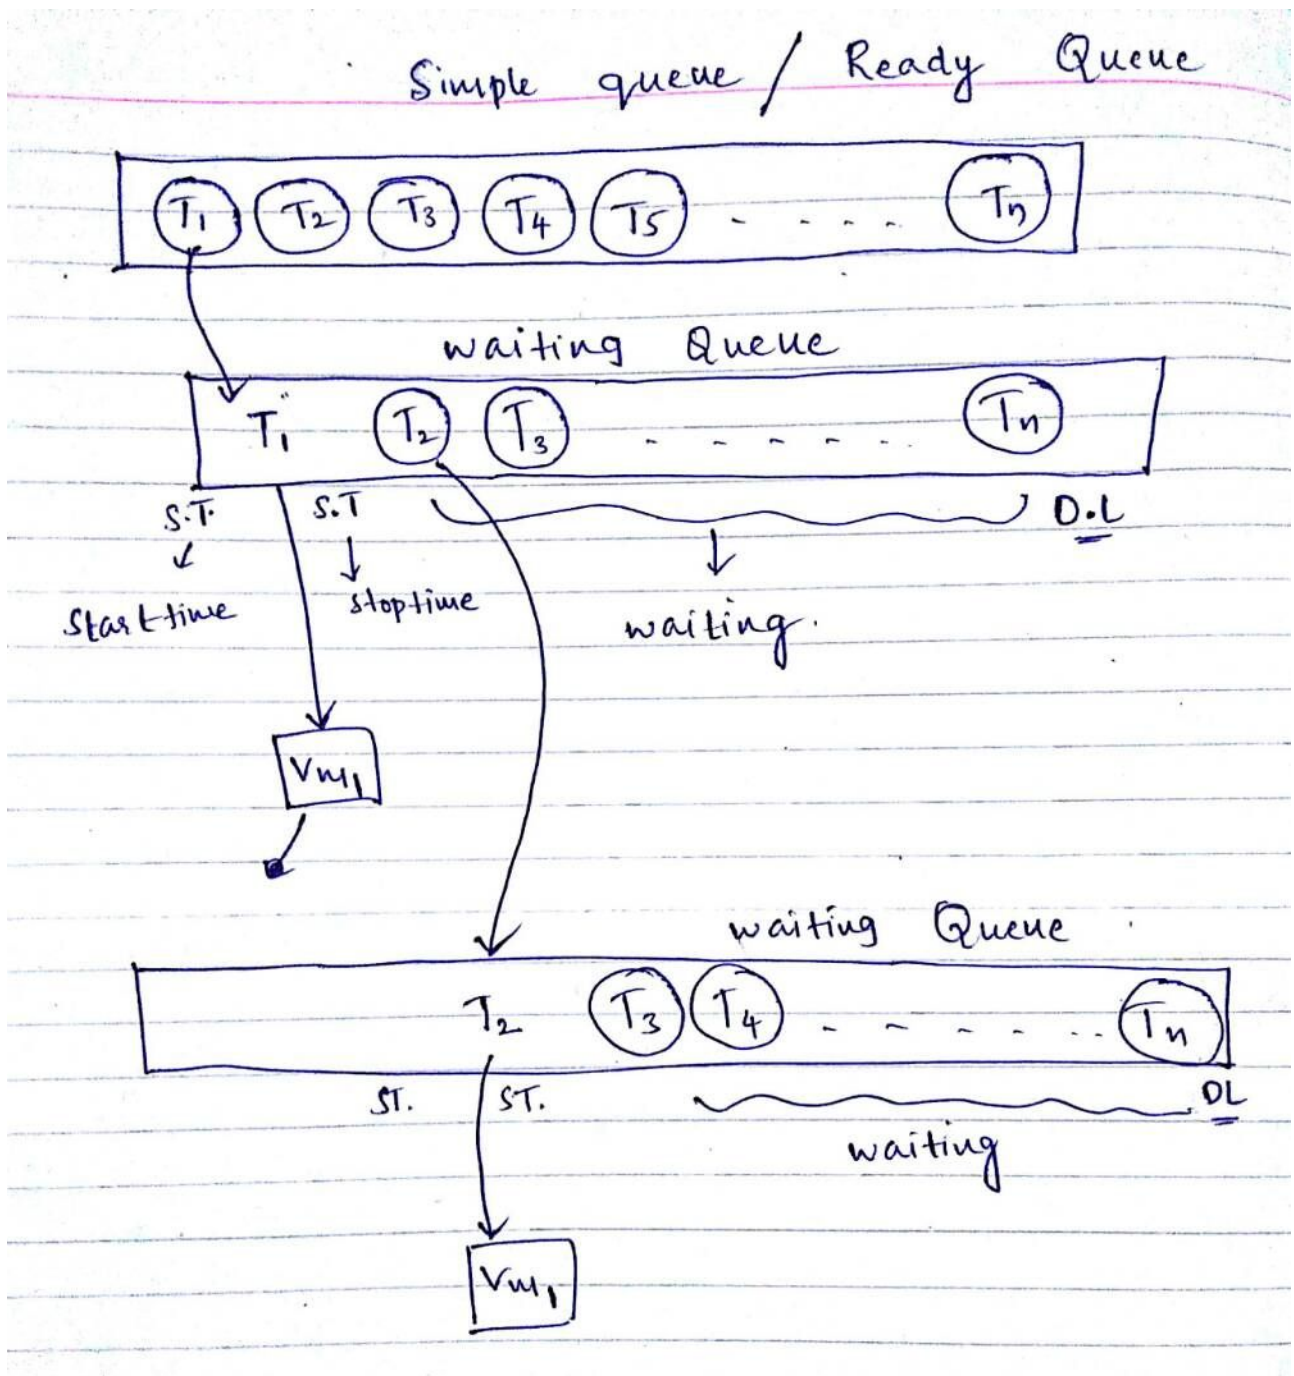 Simple queue / Ready Queue
T1 T2 T3 T4 T5 - - - - - Tn
waiting Queue
T1 T2 T3 - - - - - - Tn
S.T. S.T D.L
Start time stoptime waiting.
Vm1
waiting Queue
T2 T3 T4 - - - - - - - Tn
ST. ST. DL
waiting
Vm1